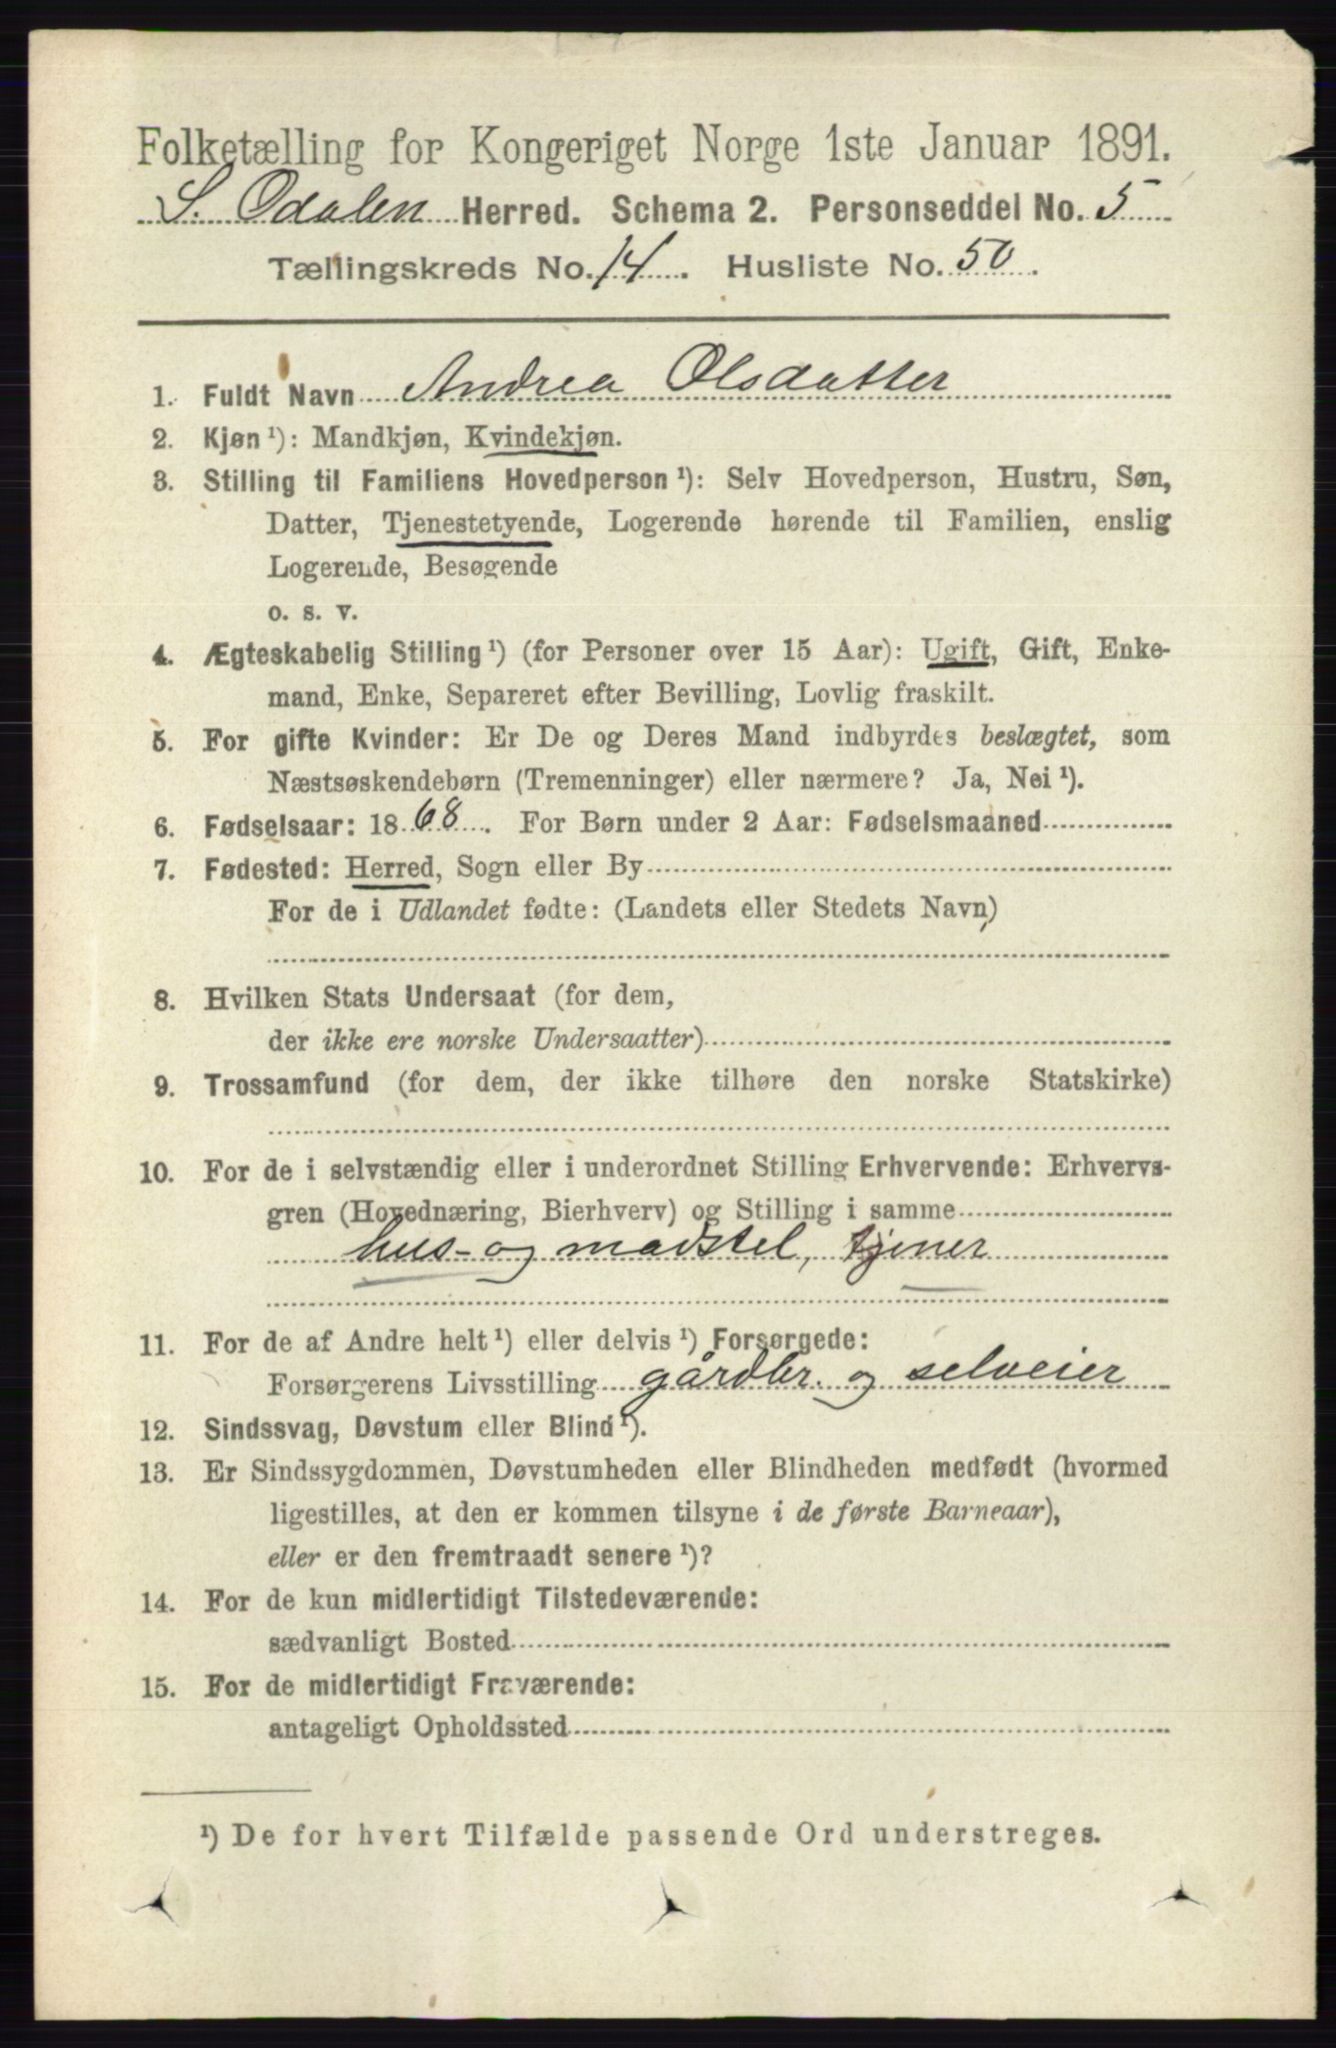 Folketælling for Kongeriget Norge 1ste Januar 1891.
S. Odalen Herred. Schema 2. Personseddel No. 5
Tællingskreds No. 14. Husliste No. 50.
1. Fuldt Navn Andrea Olsdatter
2. Kjøn ¹): Mandkjøn, Kvindekjøn.
3. Stilling til Familiens Hovedperson ¹): Selv Hovedperson, Hustru, Søn,
Datter, Tjenestetyende, Logerende hørende til Familien, enslig
Logerende, Besøgende
o. s. v.
4. Ægteskabelig Stilling ¹) (for Personer over 15 Aar): Ugift, Gift, Enke-
mand, Enke, Separeret efter Bevilling, Lovlig fraskilt.
5. For gifte Kvinder: Er De og Deres Mand indbyrdes beslægtet, som
Næstsøskendebørn (Tremenninger) eller nærmere? Ja, Nei ¹).
6. Fødselsaar: 1868. For Børn under 2 Aar: Fødselsmaaned
7. Fødested: Herred, Sogn eller By
For de i Udlandet fødte: (Landets eller Stedets Navn)
8. Hvilken Stats Undersaat (for dem,
der ikke ere norske Undersaatter)
9. Trossamfund (for dem, der ikke tilhøre den norske Statskirke)
10. For de i selvstændig eller i underordnet Stilling Erhvervende: Erhvervs-
gren (Hovednæring, Bierhverv) og Stilling i samme
hus- og madstel, tjener
11. For de af Andre helt ¹) eller delvis ¹) Forsørgede:
Forsørgerens Livsstilling gårdbr. og selveier
12. Sindssvag, Døvstum eller Blind ¹).
13. Er Sindssygdommen, Døvstumheden eller Blindheden medfødt (hvormed
ligestilles, at den er kommen tilsyne i de første Barneaar),
eller er den fremtraadt senere ¹)?
14. For de kun midlertidigt Tilstedeværende:
sædvanligt Bosted
15. For de midlertidigt Fraværende:
antageligt Opholdssted
¹) De for hvert Tilfælde passende Ord understreges.